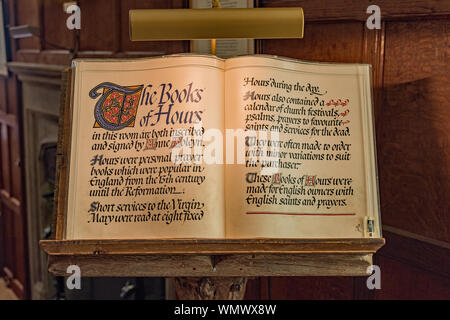 The Books
of Hours
in this room are both inscribed
and signed by Anne Boleyn.
Hours were personal prayer
books which were popular in
England from the 13th century
until the Reformation
Short services to the Virgin
Mary were read at eight fixed
Hours during the day.
Hours also contained a
calendar of church festivals,
psalms, prayers to favourite
saints and services for the dead
They were often made to order
with minor variations to suit
the purchaser.
These Books of Hours were
made for English owners with
English saints and prayers.
alamy
Image ID: WWX058
www.alamy.com